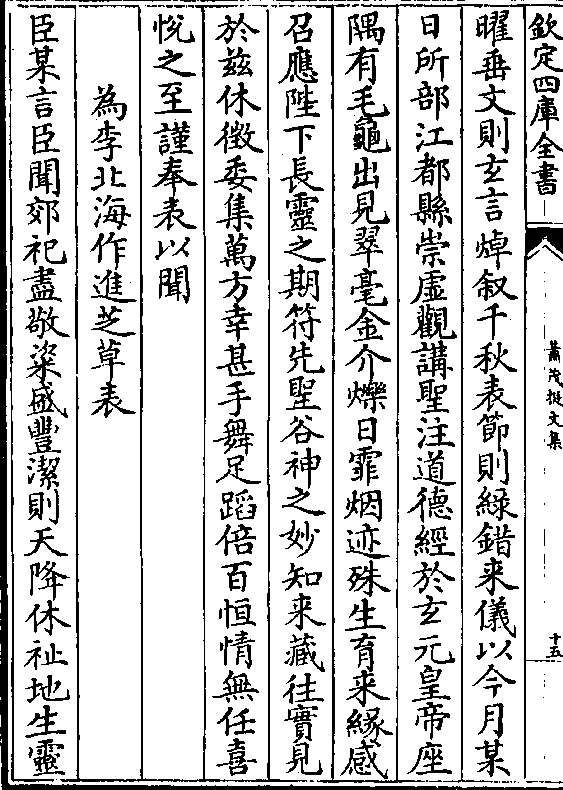 欽定四庫全書
蕭茂挺文集
十五
曜垂文則玄言焯叙千秋表節則緑錯来儀以今月某
日所部江都縣崇虚觀講聖注道德經於玄元皇帝座
隅有毛龜出見翠毫金介爍日霏烟迹殊生育来緣感
召應陛下長靈之期符先聖谷神之妙知来藏往實見
於兹休徴委集萬方幸甚手舞足蹈倍百恒情無任喜
恱之至謹奉表以聞
為李北海作進芝草表
臣某言臣聞郊祀盡敬粢盛豐潔則天降休祉地生靈